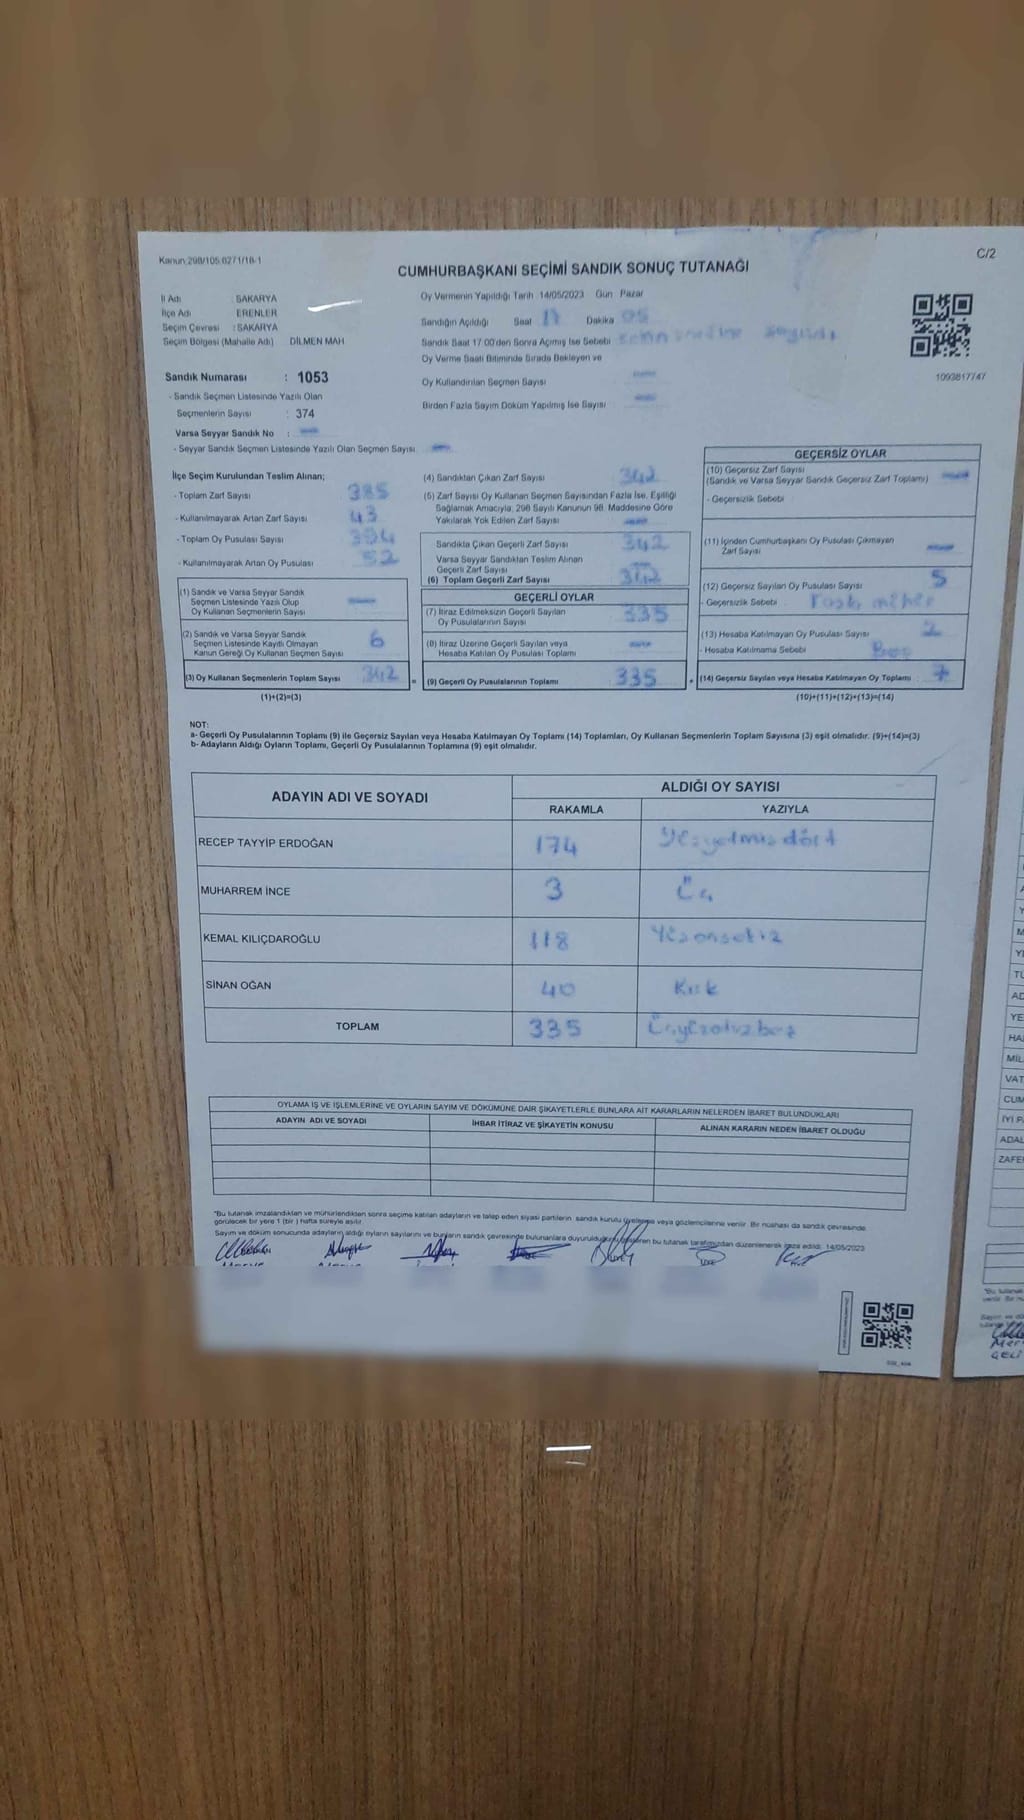 Kanun:298/105.0271/18-1
C/2
CUMHURBAŞKANI SEÇİMİ SANDIK SONUÇ TUTANAĞI
İl Adı : SAKARYA
İlçe Adı : ERENLER
Seçim Çevresi : SAKARYA
Seçim Bölgesi (Mahalle Adı) DİLMEN MAH
Sandık Numarası : 1053
- Sandık Seçmen Listesinde Yazılı Olan
Seçmenlerin Sayısı : 374
Varsa Seyyar Sandık No : —
- Seyyar Sandık Seçmen Listesinde Yazılı Olan Seçmen Sayısı —
Oy Vermenin Yapıldığı Tarih 14/05/2023 Gün Pazar
Sandığın Açıldığı Saat 17 Dakika 05
Sandık Saat 17:00'den Sonra Açılmış İse Sebebi
Oy Verme Saati Bitiminde Sırada Bekleyen ve
Oy Kullandırılan Seçmen Sayısı —
Birden Fazla Sayım Döküm Yapılmış İse Sayısı —
1093817747
İlçe Seçim Kurulundan Teslim Alınan;
- Toplam Zarf Sayısı 385
- Kullanılmayarak Artan Zarf Sayısı 43
- Toplam Oy Pusulası Sayısı 394
- Kullanılmayarak Artan Oy Pusulası 52
(1) Sandık ve Varsa Seyyar Sandık
Seçmen Listesinde Yazılı Olup
Oy Kullanan Seçmenlerin Sayısı —
(2) Sandık ve Varsa Seyyar Sandık
Seçmen Listesinde Kayıtlı Olmayan
Kanun Gereği Oy Kullanan Seçmen Sayısı 6
(3) Oy Kullanan Seçmenlerin Toplam Sayısı 342
(1)+(2)=(3)
(4) Sandıktan Çıkan Zarf Sayısı 342
(5) Zarf Sayısı Oy Kullanan Seçmen Sayısından Fazla İse, Eşitliği
Sağlamak Amacıyla, 298 Sayılı Kanunun 98. Maddesine Göre
Yakılarak Yok Edilen Zarf Sayısı —
Sandıkta Çıkan Geçerli Zarf Sayısı 342
Varsa Seyyar Sandıktan Teslim Alınan
Geçerli Zarf Sayısı
(6) Toplam Geçerli Zarf Sayısı 342
GEÇERLİ OYLAR
(7) İtiraz Edilmeksizin Geçerli Sayılan
Oy Pusulalarının Sayısı 335
(8) İtiraz Üzerine Geçerli Sayılan veya
Hesaba Katılan Oy Pusulası Toplamı —
= (9) Geçerli Oy Pusulalarının Toplamı 335 +
GEÇERSİZ OYLAR
(10) Geçersiz Zarf Sayısı
(Sandık ve Varsa Seyyar Sandık Geçersiz Zarf Toplamı) —
- Geçersizlik Sebebi
(11) İçinden Cumhurbaşkanı Oy Pusulası Çıkmayan
Zarf Sayısı —
(12) Geçersiz Sayılan Oy Pusulası Sayısı 5
- Geçersizlik Sebebi
(13) Hesaba Katılmayan Oy Pusulası Sayısı 2
- Hesaba Katılmama Sebebi Boş
(14) Geçersiz Sayılan veya Hesaba Katılmayan Oy Toplamı : 7
(10)+(11)+(12)+(13)=(14)
NOT:
a- Geçerli Oy Pusulalarının Toplamı (9) ile Geçersiz Sayılan veya Hesaba Katılmayan Oy Toplamı (14) Toplamları, Oy Kullanan Seçmenlerin Toplam Sayısına (3) eşit olmalıdır. (9)+(14)=(3)
b- Adayların Aldığı Oyların Toplamı, Geçerli Oy Pusulalarının Toplamına (9) eşit olmalıdır.
ADAYIN ADI VE SOYADI
ALDIĞI OY SAYISI
RAKAMLA YAZIYLA
RECEP TAYYİP ERDOĞAN 174 Yüzyetmişdört
MUHARREM İNCE 3 Üç
KEMAL KILIÇDAROĞLU 118 Yüzonsekiz
SİNAN OĞAN 40 Kırk
TOPLAM 335 Üçyüzotuzbeş
OYLAMA İŞ VE İŞLEMLERİNE VE OYLARIN SAYIM VE DÖKÜMÜNE DAİR ŞİKAYETLERLE BUNLARA AİT KARARLARIN NELERDEN İBARET BULUNDUKLARI
ADAYIN ADI VE SOYADI İHBAR İTİRAZ VE ŞİKAYETİN KONUSU ALINAN KARARIN NEDEN İBARET OLDUĞU
"Bu tutanak imzalandıktan ve mühürlendikten sonra seçime katılan adayların ve talep eden siyasi partilerin sandık kurulu üyelerine veya gözlemcilerine verilir. Bir nüshası da sandık çevresinde
görülecek bir yere 1 (bir) hafta süreyle asılır.
Sayım ve döküm sonucunda adayların aldığı oyların sayılarını ve bunların sandık çevresinde bulunanlara duyurulduğunu gösteren bu tutanak tarafımızdan düzenlenerek imza edildi. 14/05/2023